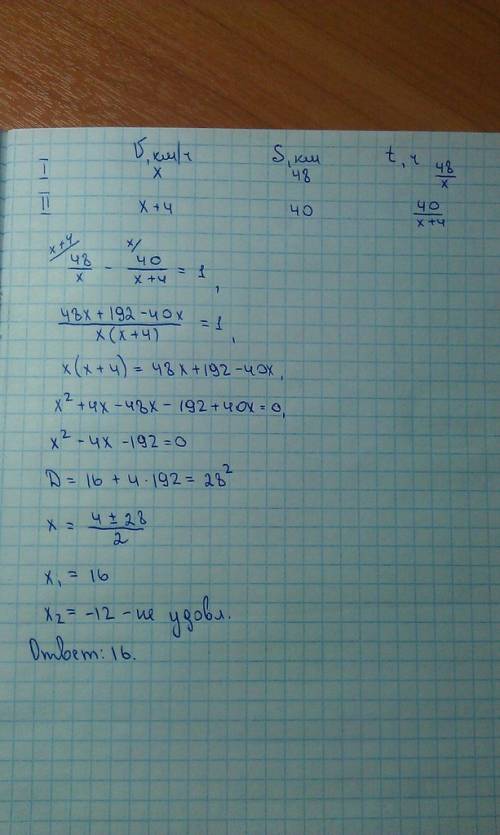 V, км/ч S, км t, ч
I x 48 48/x
II x+4 40 40/(x+4)
x+4/ 48/x - x/ 40/(x+4) = 1,
(48x+192-40x)/(x(x+4)) = 1,
x(x+4) = 48x+192-40x,
x²+4x-48x-192+40x=0,
x²-4x-192=0
D = 16 + 4·192 = 28²
x = (4±28)/2
x₁ = 16
x₂ = -12 - не удовл.
Ответ: 16.